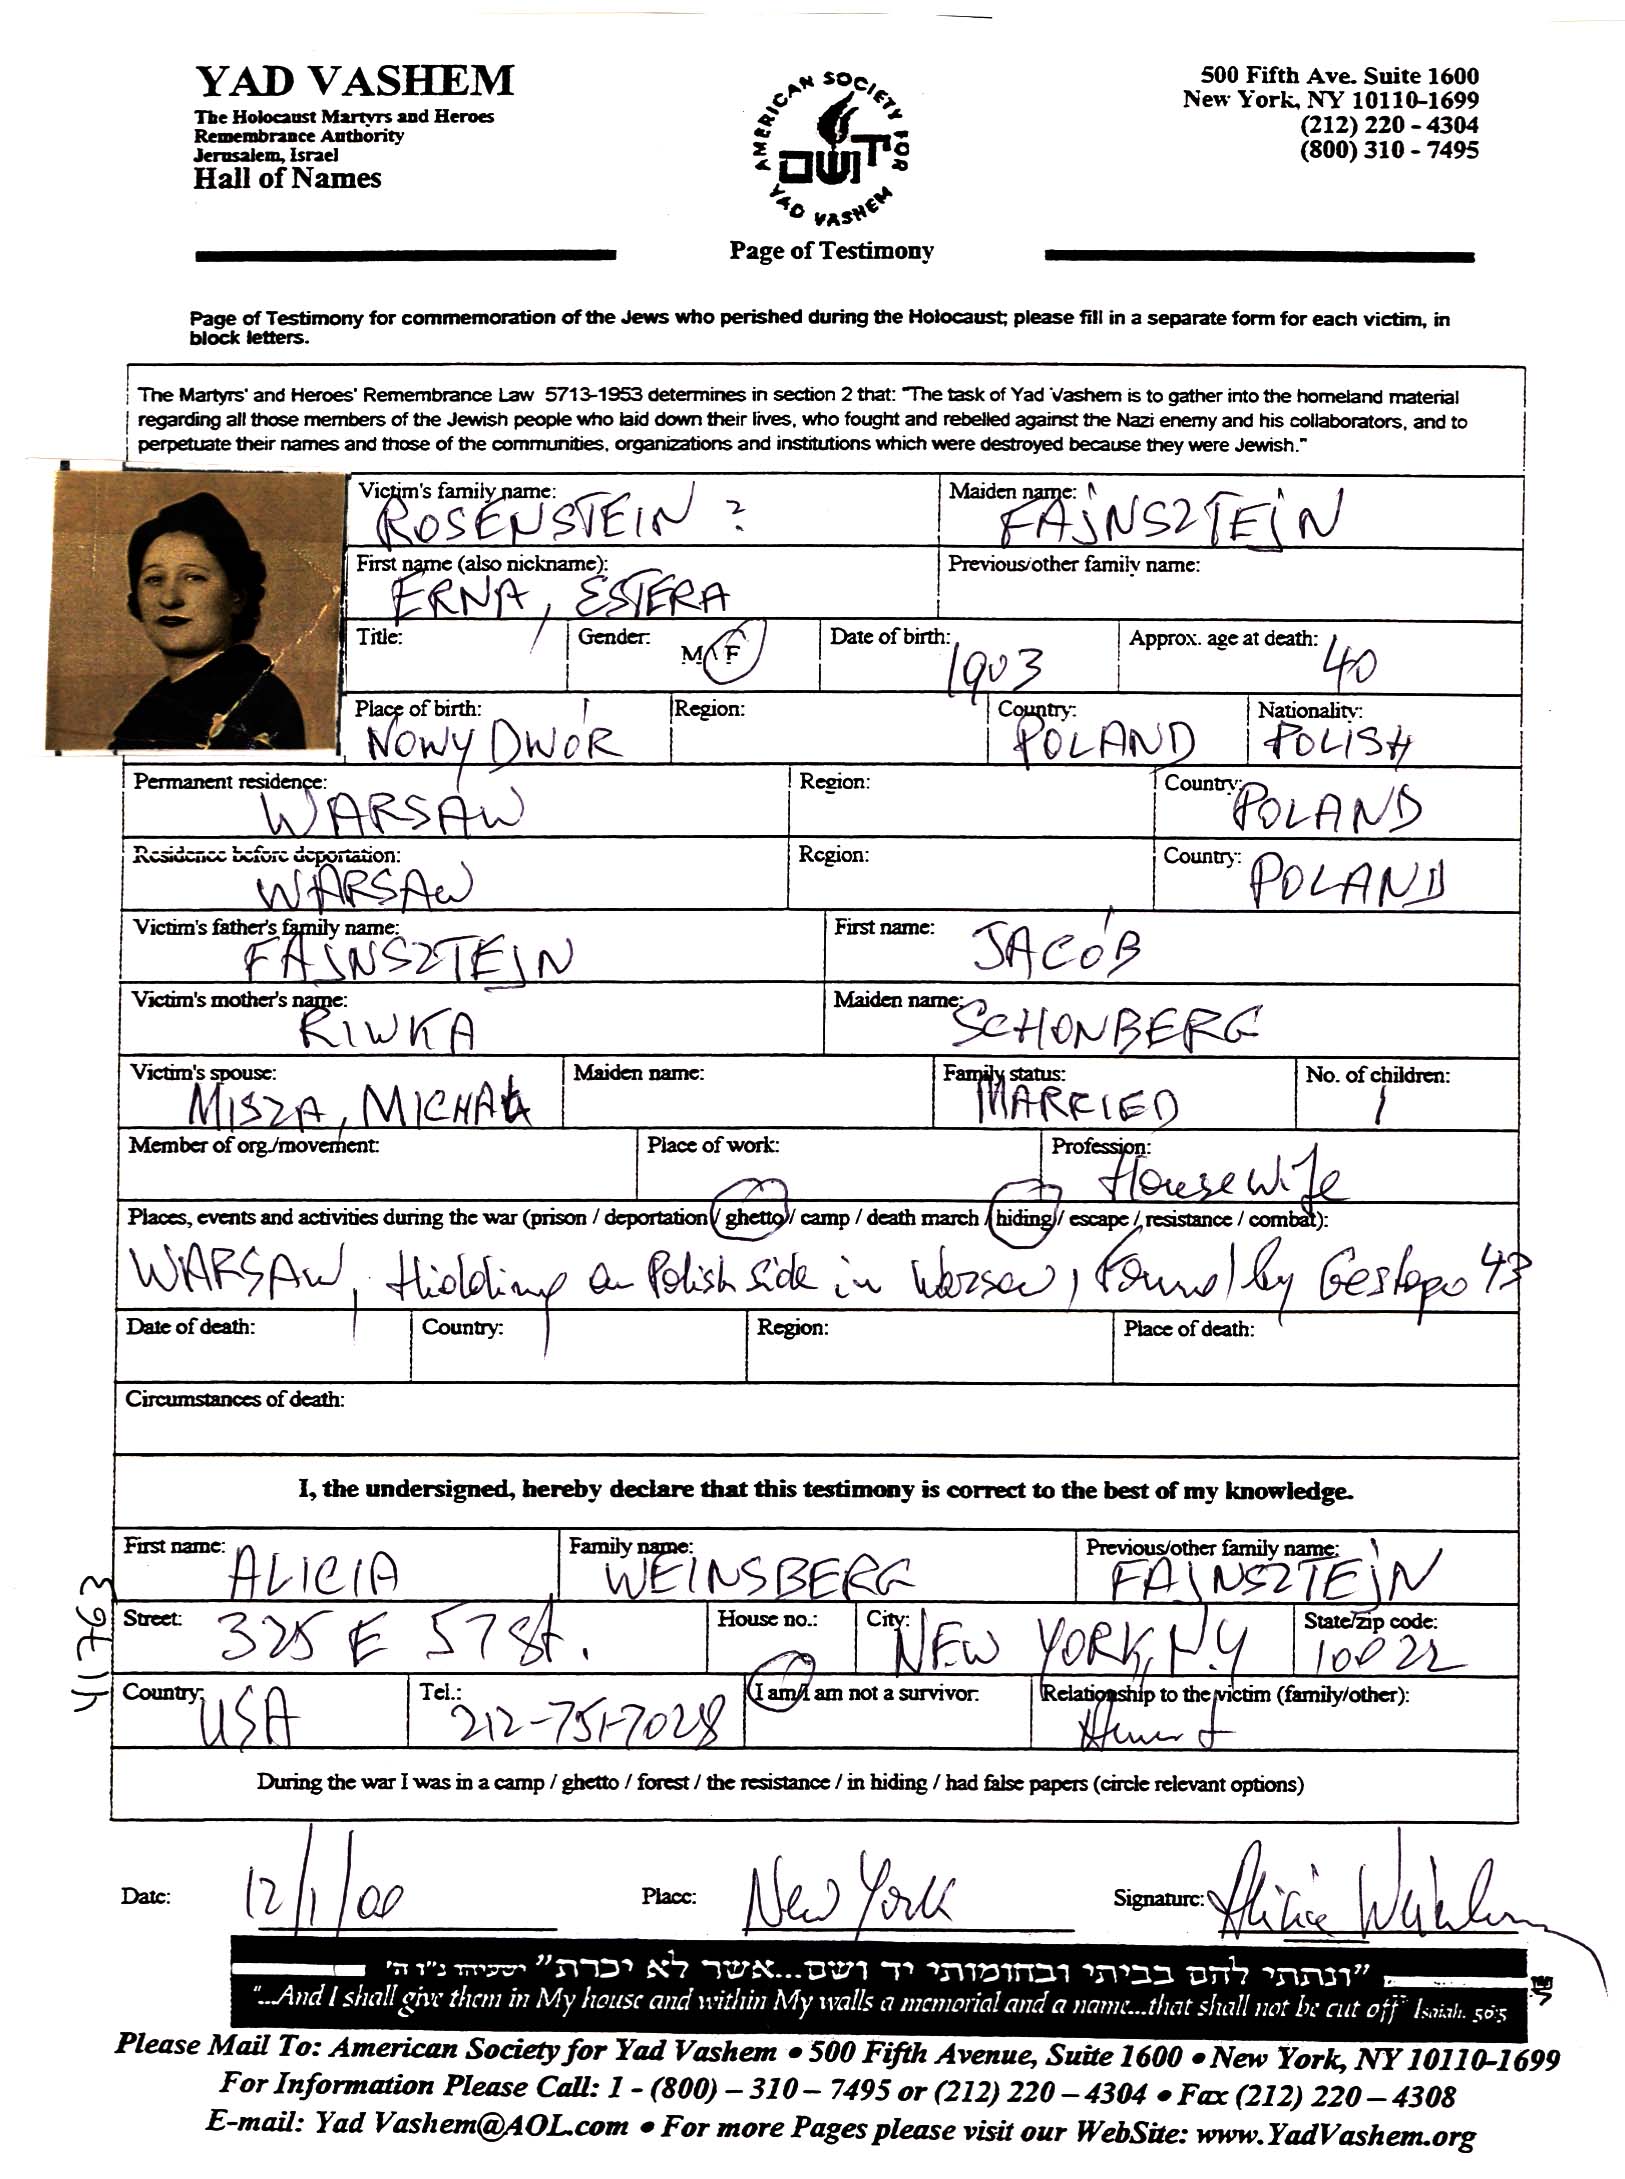 YAD VASHEM
The Holocaust Martyrs and Heroes
Remembrance Authority
Jerusalem, Israel
Hall of Names
AMERICAN SOCIETY FOR
יד ושם
YAD VASHEM
Page of Testimony
500 Fifth Ave. Suite 1600
New York, NY 10110-1699
(212) 220 - 4304
(800) 310 - 7495
Page of Testimony for commemoration of the Jews who perished during the Holocaust; please fill in a separate form for each victim, in
block letters.
The Martyrs' and Heroes' Remembrance Law 5713-1953 determines in section 2 that: "The task of Yad Vashem is to gather into the homeland material
regarding all those members of the Jewish people who laid down their lives, who fought and rebelled against the Nazi enemy and his collaborators, and to
perpetuate their names and those of the communities, organizations and institutions which were destroyed because they were Jewish."
Victim's family name: ROSENSTEIN ? Maiden name: FAJNSZTEJN
First name (also nickname): ERNA, ESTERA Previous/other family name:
Title: Gender: M / F Date of birth: 1903 Approx. age at death: 40
Place of birth: NOWY DWÓR Region: Country: POLAND Nationality: POLISH
Permanent residence: WARSAW Region: Country: POLAND
Residence before deportation: WARSAW Region: Country: POLAND
Victim's father's family name: FAJNSZTEJN First name: JACÓB
Victim's mother's name: RIWKA Maiden name: SCHONBERG
Victim's spouse: MISZA, MICHAŁ Maiden name: Family status: MARRIED No. of children: 1
Member of org./movement: Place of work: Profession: Housewife
Places, events and activities during the war (prison / deportation / ghetto / camp / death march / hiding / escape / resistance / combat):
WARSAW, Hidding on Polish side in Warsaw, found by Gestapo 43
Date of death: Country: Region: Place of death:
Circumstances of death:
I, the undersigned, hereby declare that this testimony is correct to the best of my knowledge.
First name: ALICIA Family name: WEINSBERG Previous/other family name: FAJNSZTEJN
41763
Street: 325 E 57 St. House no.: City: NEW YORK, N.Y State/zip code: 10022
Country: USA Tel.: 212-751-7028 I am/I am not a survivor. Relationship to the victim (family/other):
During the war I was in a camp / ghetto / forest / the resistance / in hiding / had false papers (circle relevant options)
Date: 12/1/00 Place: New York Signature: Alicia
"ונתתי להם בביתי ובחומותי יד ושם...אשר לא יכרת" ישעיהו נ"ו ה'
"...And I shall give them in My house and within My walls a memorial and a name...that shall not be cut off" Isaiah. 56:5
Please Mail To: American Society for Yad Vashem • 500 Fifth Avenue, Suite 1600 • New York, NY 10110-1699
For Information Please Call: 1 - (800) – 310 – 7495 or (212) 220 – 4304 • Fax (212) 220 – 4308
E-mail: Yad Vashem@AOL.com • For more Pages please visit our WebSite: www.YadVashem.org